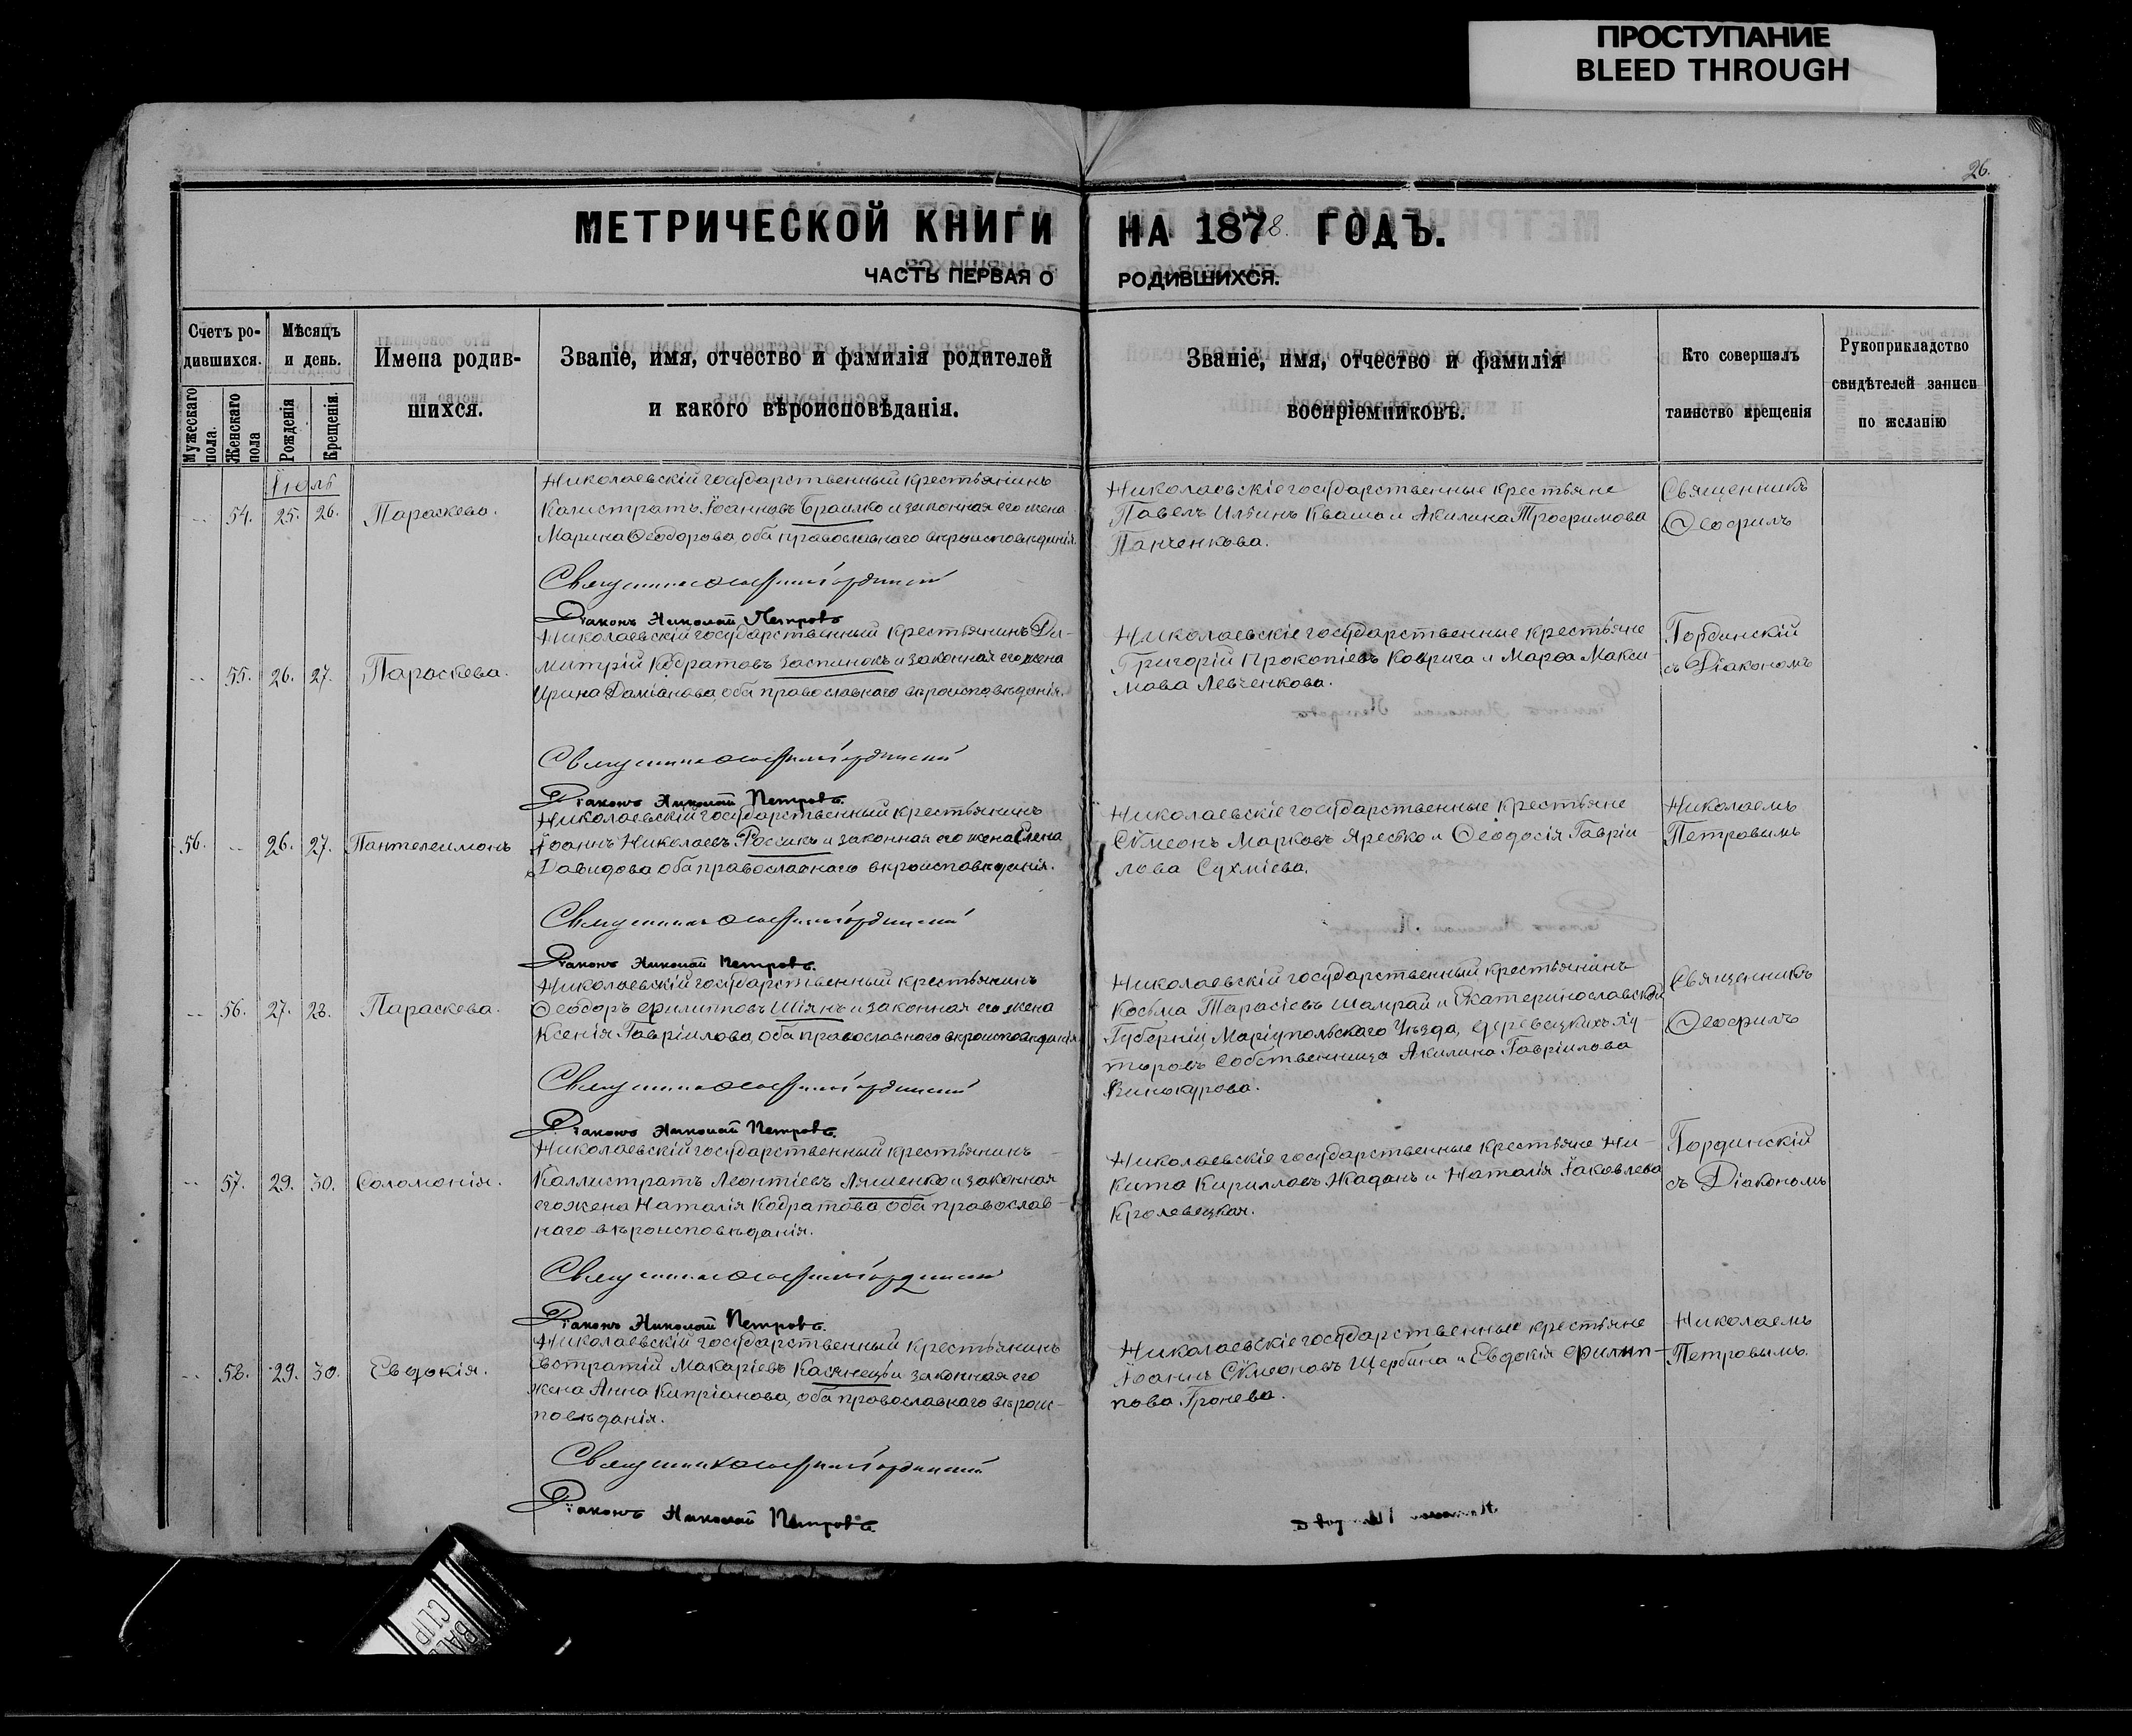 ПРОСТУПАНИЕ
BLEED THROUGH
26.
МЕТРИЧЕСКОЙ КНИГИ НА 1878. ГОДЪ.
ЧАСТЬ ПЕРВАЯ О РОДИВШИХСЯ.
Счетъ ро-
дившихся.
Мужескаго пола.
Женскаго пола
Мѣсяцъ
и день.
Рожденія
Крещенія.
Имена родив-
шихся.
Званіе, имя, отчество и фамилія родителей
и какого вѣроисповѣданія.
Званіе, имя, отчество и фамилія
воспріемниковъ.
Кто совершалъ
таинство крещенія
Рукоприкладство
свидѣтелей записи
по желанію
Іюль
54. 25. 26. Параскева.
Николаевскій государственный крестьянинъ
Калистратъ Іоанновъ Браилко и законная его жена
Марина Ѳеодорова, оба православнаго вѣроисповѣданія.
Николаевскіе государственные крестьяне
Павелъ Ильинъ Кваша и Акилина Трофимова
Панченкова.
Священникъ
Ѳеофилъ
Священникъ Ѳеофилъ Гординскій
Діаконъ Николай Петровъ
55. 26. 27. Параскева.
Николаевскій государственный крестьянинъ Ди-
митрій Кодратовъ Заспинокъ и законная его жена
Ирина Даміанова, оба православнаго вѣроисповѣданія.
Николаевскіе государственные крестьяне
Григорій Прокопіевъ Коврига и Марѳа Макси-
мова Левченкова.
Гординскій
съ Діакономъ
Священникъ Ѳеофилъ Гординскій
Діаконъ Николай Петровъ.
56. 26. 27. Пантелеимонъ
Николаевскій государственный крестьянинъ
Іоаннъ Николаевъ Россикъ и законная его жена Елена
Давидова оба православнаго вѣроисповѣданія.
Николаевскіе государственные крестьяне
Сѵмеонъ Марковъ Яресько и Ѳеодосія Гавріи-
лова Сухміева.
Николаемъ
Петровымъ
Священникъ Ѳеофилъ Гординскій
Діаконъ Николай Петровъ.
56. 27. 28. Параскева.
Николаевскій государственный крестьянинъ
Ѳеодоръ Филипповъ Шіянъ и законная его жена
Ксенія Гавріилова, оба православнаго вѣроисповѣданія.
Николаевскій государственный крестьянинъ
Косьма Тарасіевъ Шамрай и Екатеринославской
Губерніи, Маріупольскаго Уѣзда, Ху-
торовъ Собственница Акилина Гавріилова
Винокурова.
Священникъ
Ѳеофилъ
Священникъ Ѳеофилъ Гординскій
Діаконъ Николай Петровъ.
57. 29. 30. Соломонія.
Николаевскій государственный крестьянинъ
Каллистратъ Леонтіевъ Ляшенко и законная
его жена Наталія Кодратова оба православ-
наго вѣроисповѣданія.
Николаевскіе государственные крестьяне Ни-
кита Кирилловъ Жаданъ и Наталія Іаковлева
Кролевецкая.
Гординскій
съ Діакономъ
Священникъ Ѳеофилъ Гординскій
Діаконъ Николай Петровъ.
58. 29. 30. Евдокія.
Николаевскій государственный крестьянинъ
Евстратій Макаріевъ Касянецъ и законная его
жена Анна Кипріанова, оба православнаго вѣроис-
повѣданія.
Николаевскіе государственные крестьяне
Іоаннъ Сѵмеоновъ Щербина и Евдокія Филип-
пова Гронева.
Николаемъ
Петровымъ.
Священникъ Ѳеофилъ Гординскій
Діаконъ Николай Петровъ.